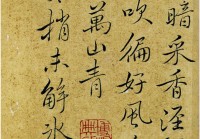 暗采香涇
吹徧好風
萬山青
梢未解氷